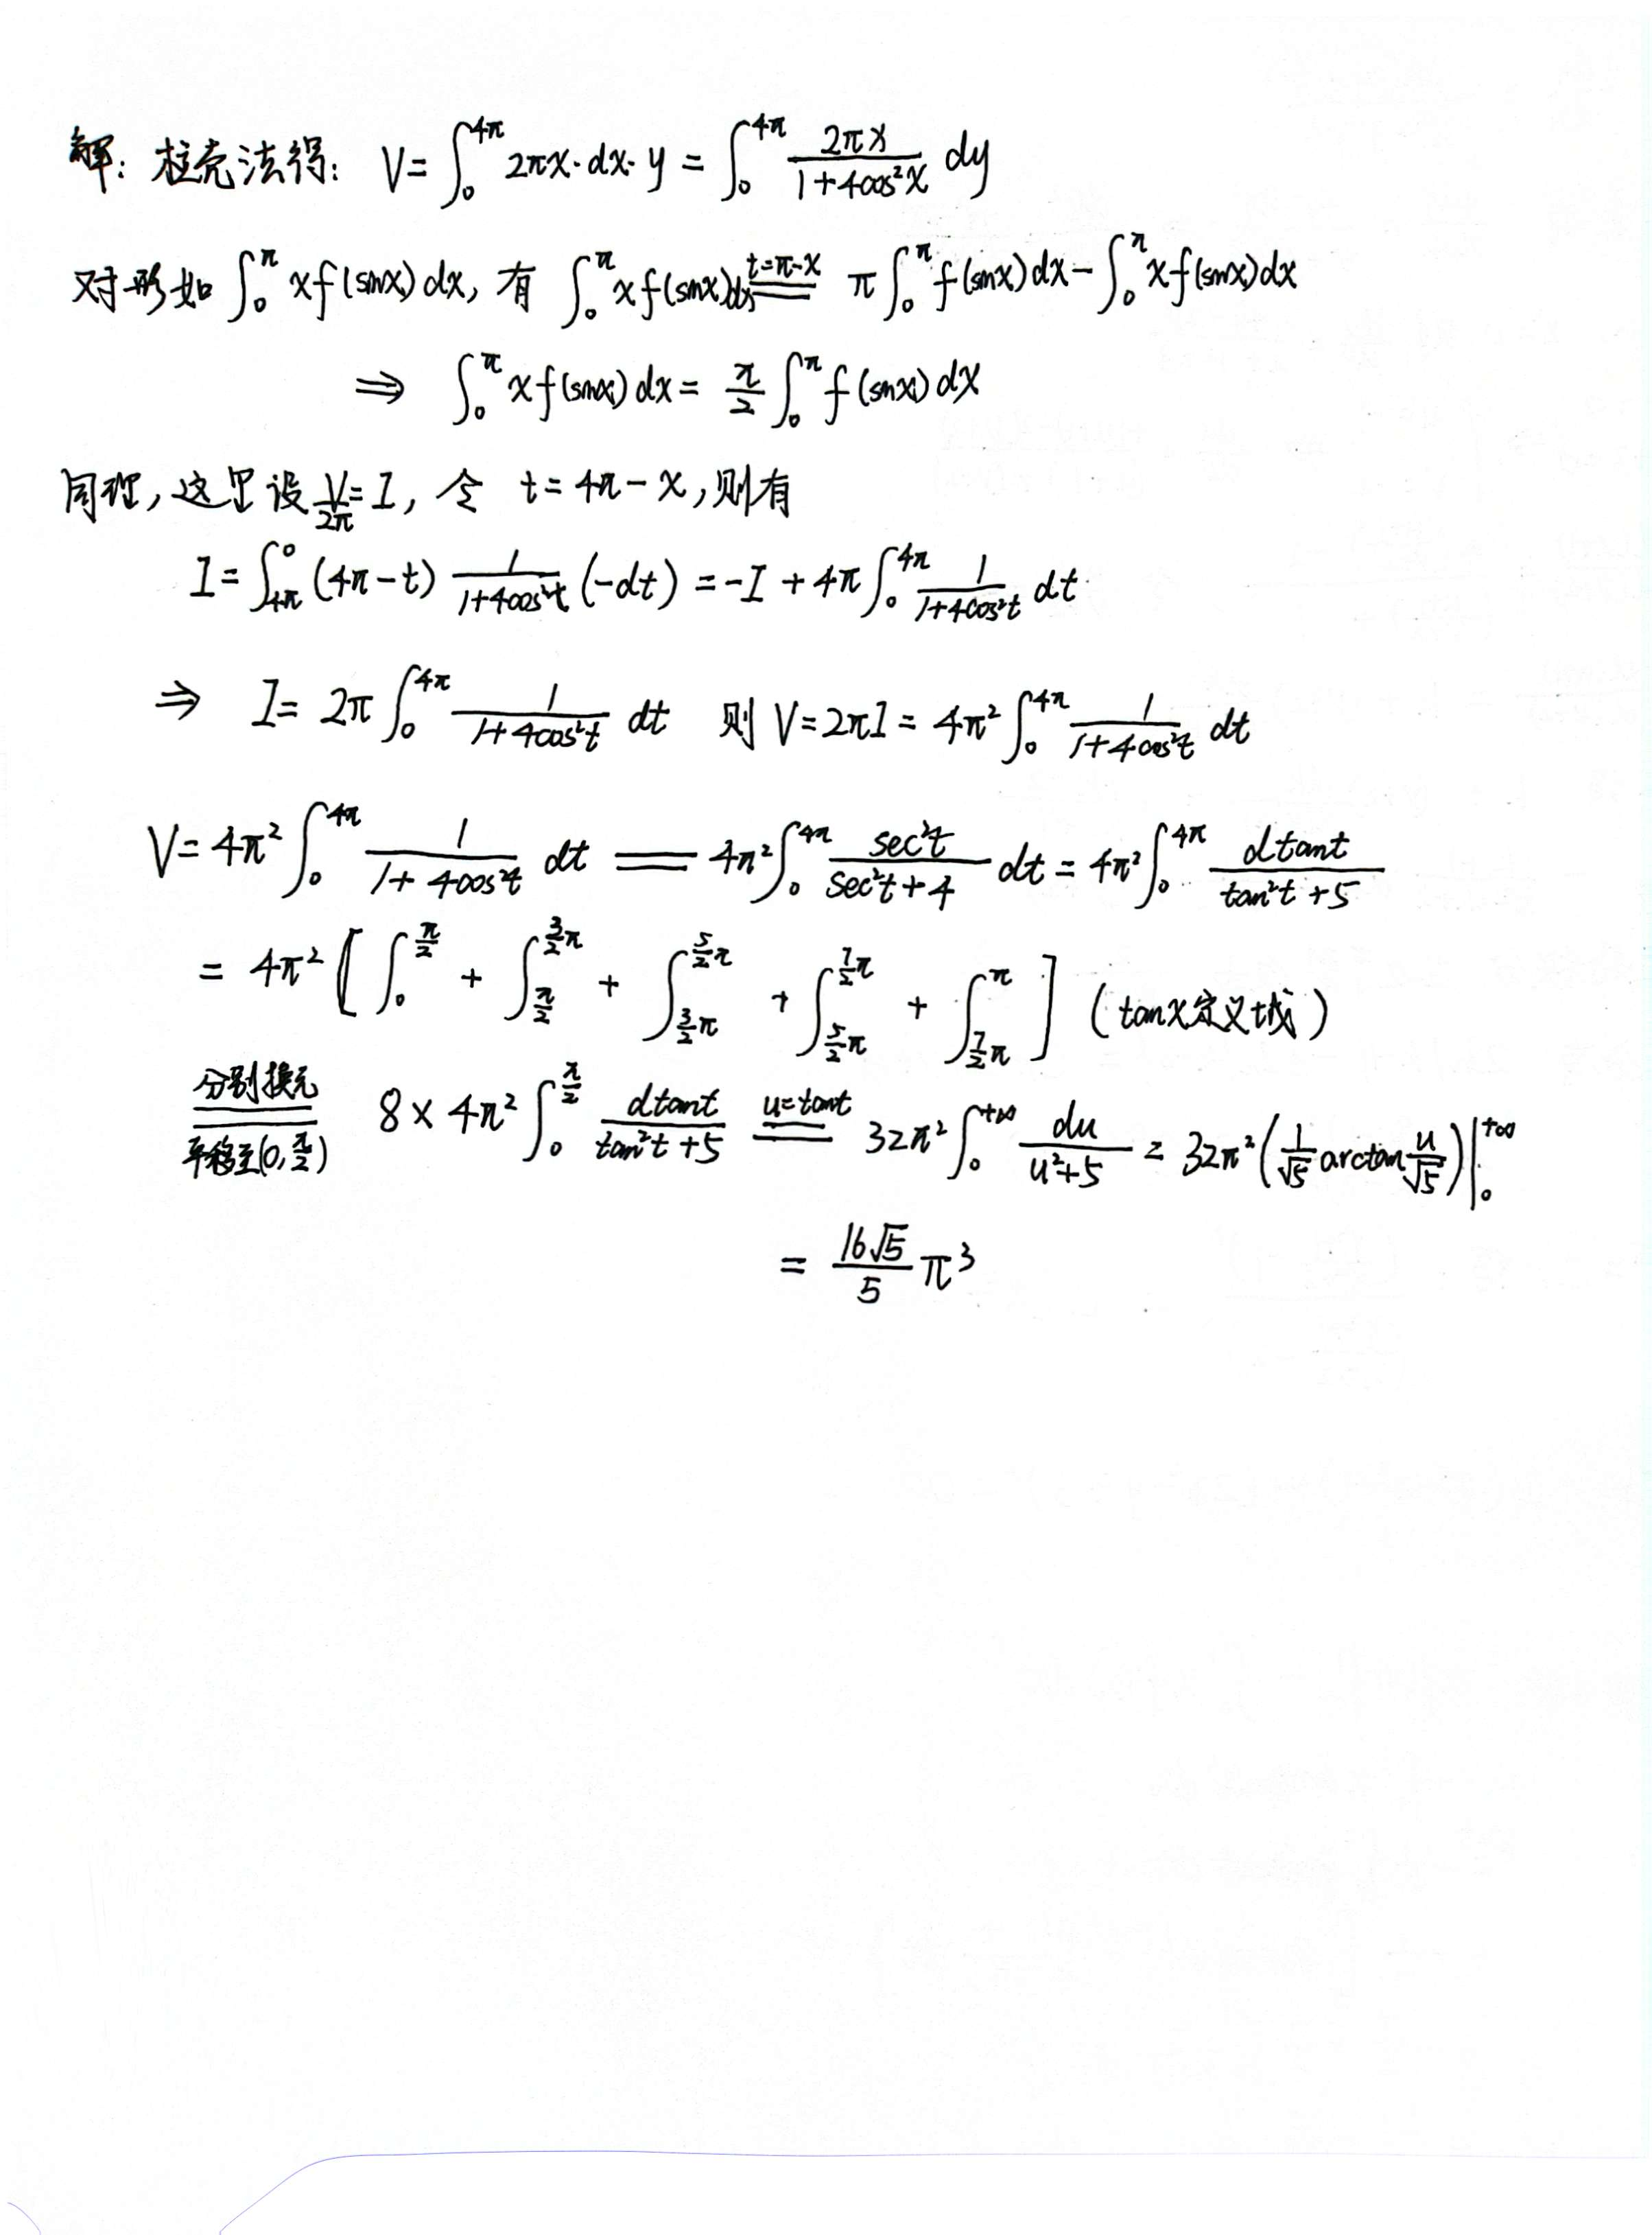 解：柱壳法得： V=∫₀^{4π} 2πx·dx·y = ∫₀^{4π} \frac{2πx}{1+4cos²x} dy
对形如 ∫₀^π xf(sinx)dx, 有 ∫₀^π xf(sinx)dx \overset{t=π-x}{=} π∫₀^π f(sinx)dx-∫₀^π xf(sinx)dx
⇒ ∫₀^π xf(sinx)dx = \frac{π}{2}∫₀^π f(sinx)dx
同理，这里设 \frac{V}{2π}=I, 令 t=4π-x, 则有
I=∫_{4π}^0 (4π-t) \frac{1}{1+4cos²t} (-dt) = -I + 4π∫₀^{4π} \frac{1}{1+4cos²t} dt
⇒ I= 2π∫₀^{4π} \frac{1}{1+4cos²t} dt 则 V=2πI= 4π²∫₀^{4π} \frac{1}{1+4cos²t} dt
V= 4π²∫₀^{4π} \frac{1}{1+4cos²t} dt = 4π²∫₀^{4π} \frac{sec²t}{sec²t+4} dt = 4π²∫₀^{4π} \frac{dtant}{tan²t+5}
= 4π² [ ∫₀^{\frac{π}{2}} + ∫_{\frac{π}{2}}^{\frac{3}{2}π} + ∫_{\frac{3}{2}π}^{\frac{5}{2}π} + ∫_{\frac{5}{2}π}^{\frac{7}{2}π} + ∫_{\frac{7}{2}π}^{π} ] (tanx定义域)
\overset{分别换元}{\underset{平移至(0,\frac{π}{2})}{=}} 8×4π²∫₀^{\frac{π}{2}} \frac{dtant}{tan²t+5} \overset{u=tant}{=} 32π²∫₀^{+∞} \frac{du}{u²+5} = 32π²(\frac{1}{√5} arctan\frac{u}{√5})|₀^{+∞}
= \frac{16√5}{5} π³